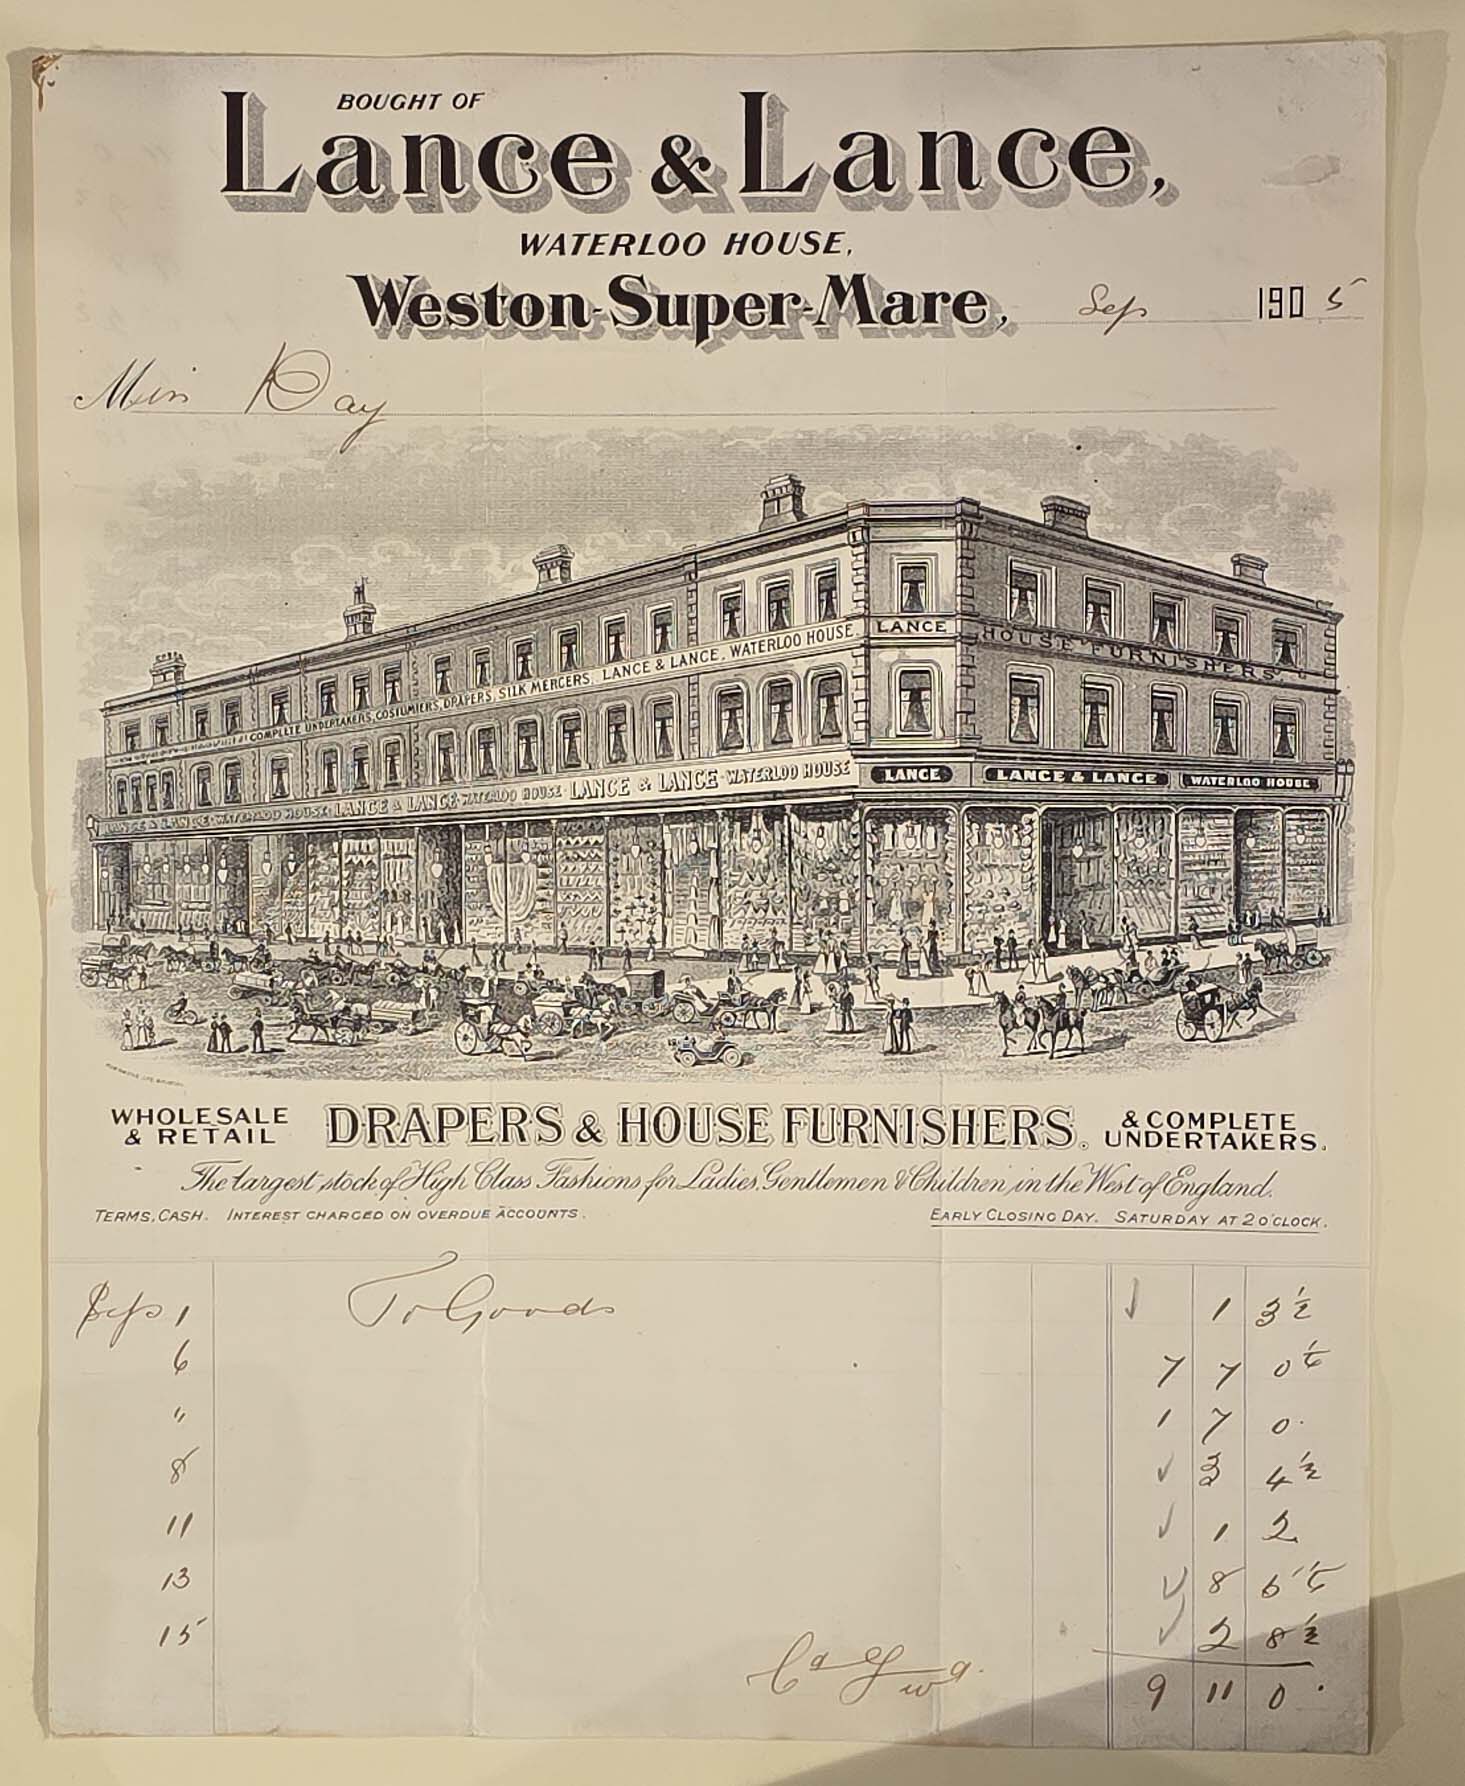 BOUGHT OF
Lance & Lance,
WATERLOO HOUSE,
Weston-Super-Mare, Sep 1905
Miss Day
LANCE
HOUSE FURNISHERS
COMPLETE UNDERTAKERS, COSTUMIERS, DRAPERS, SILK MERCERS, LANCE & LANCE, WATERLOO HOUSE
LANCE & LANCE · WATERLOO HOUSE · LANCE & LANCE · WATERLOO HOUSE · LANCE & LANCE · WATERLOO HOUSE
LANCE
LANCE & LANCE
WATERLOO HOUSE
WHOLESALE & RETAIL DRAPERS & HOUSE FURNISHERS. & COMPLETE UNDERTAKERS.
The largest stock of High Class Fashions for Ladies, Gentlemen & Children in the West of England.
TERMS, CASH. INTEREST CHARGED ON OVERDUE ACCOUNTS. EARLY CLOSING DAY. SATURDAY AT 2 O'CLOCK.
Sep 1 To Goods 1 3½
6 7 7 0½
" 1 7 0
8 3 4½
11 1 2
13 8 6½
15 2 8½
9 11 0